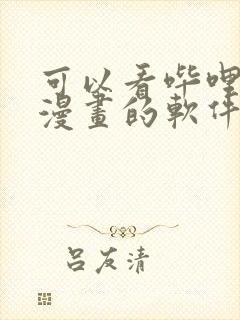 可以看哔哩
漫畫的軟件
呂友清